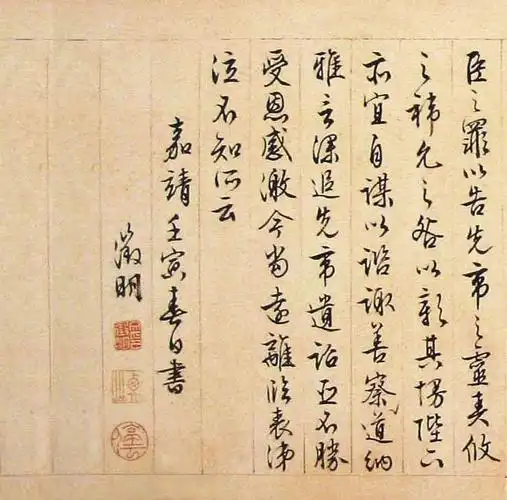 臣之罪以告先帝之靈責攸
之禕允之咎以彰其慢陛下
亦宜自謀以諮諏善察道納
雅言深追先帝遺詔臣不勝
受恩感激今當遠離臨表涕
泣不知所云
嘉靖壬寅春日書
徵明